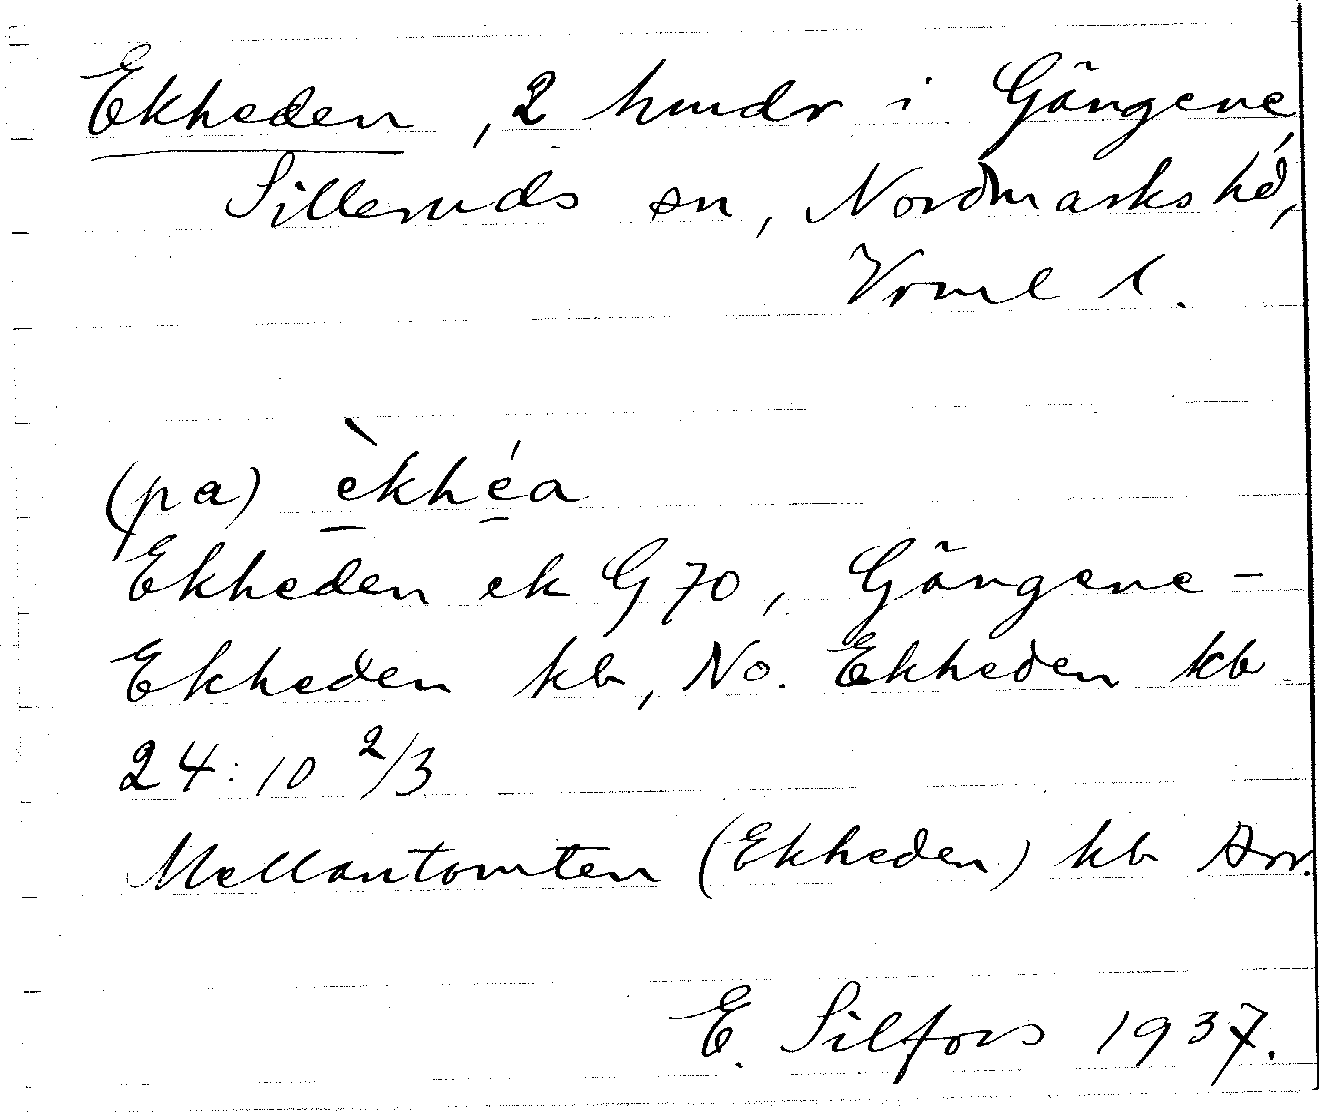 Ekheden, 2 hmdr i Gängene,
Silleruds sn, Nordmarks hd,
Vrml l.
(pa) è̠khé̠a
Ekheden ek G 70, Gängene-
Ekheden kb, No. Ekheden kb
24:10 2/3
Mellantomten (Ekheden) kb Arr.
E. Silfors 1937.